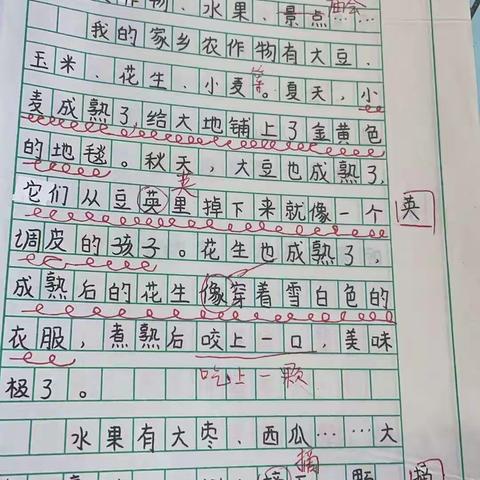 作物、水果、景点……
我的家乡农作物有大豆、
玉米、花生、小麦等。夏天,小
麦成熟了,给大地铺上了金黄色
的地毯。秋天,大豆也成熟了,
荚
它们从豆英里掉下来就像一个
荚
调皮的孩子。花生也成熟了,
成熟后的花生像穿着雪白色的
衣服,煮熟后咬上一口,美味
吃上一颗
极了。
水果有大枣、西瓜……大
摘